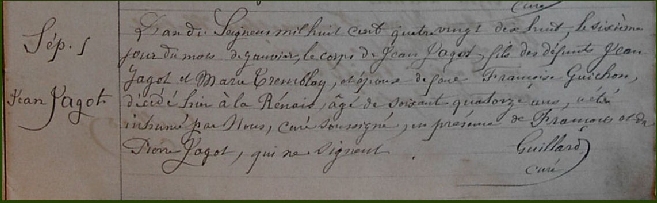 curé
Sép.
Jean Jagot
L'an du Seigneur mil huit cent quatre vingt dix huit, le sixième
jour du mois de janvier, le corps de Jean Jagot, fils des défunts Jean
Jagot et Marie Tremblay, et époux de Françoise Guichon,
décédé hier à la Rénais, âgé de soixante quatorze ans, a été
inhumé par Nous, curé soussigné, en présence de François et de
Pierre Jagot, qui ne signent
Guillard
curé